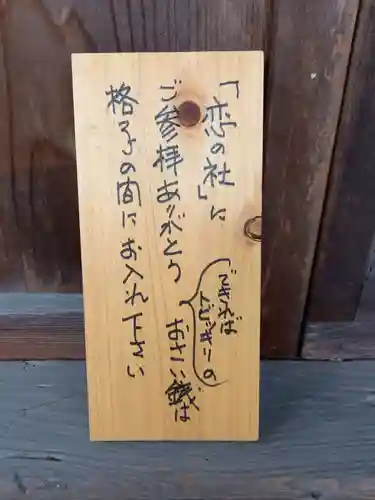 「恋の社」に
ご参拝ありがとう
(できれば
トビッキリの)
おさい銭は
格子の間にお入れ下さい